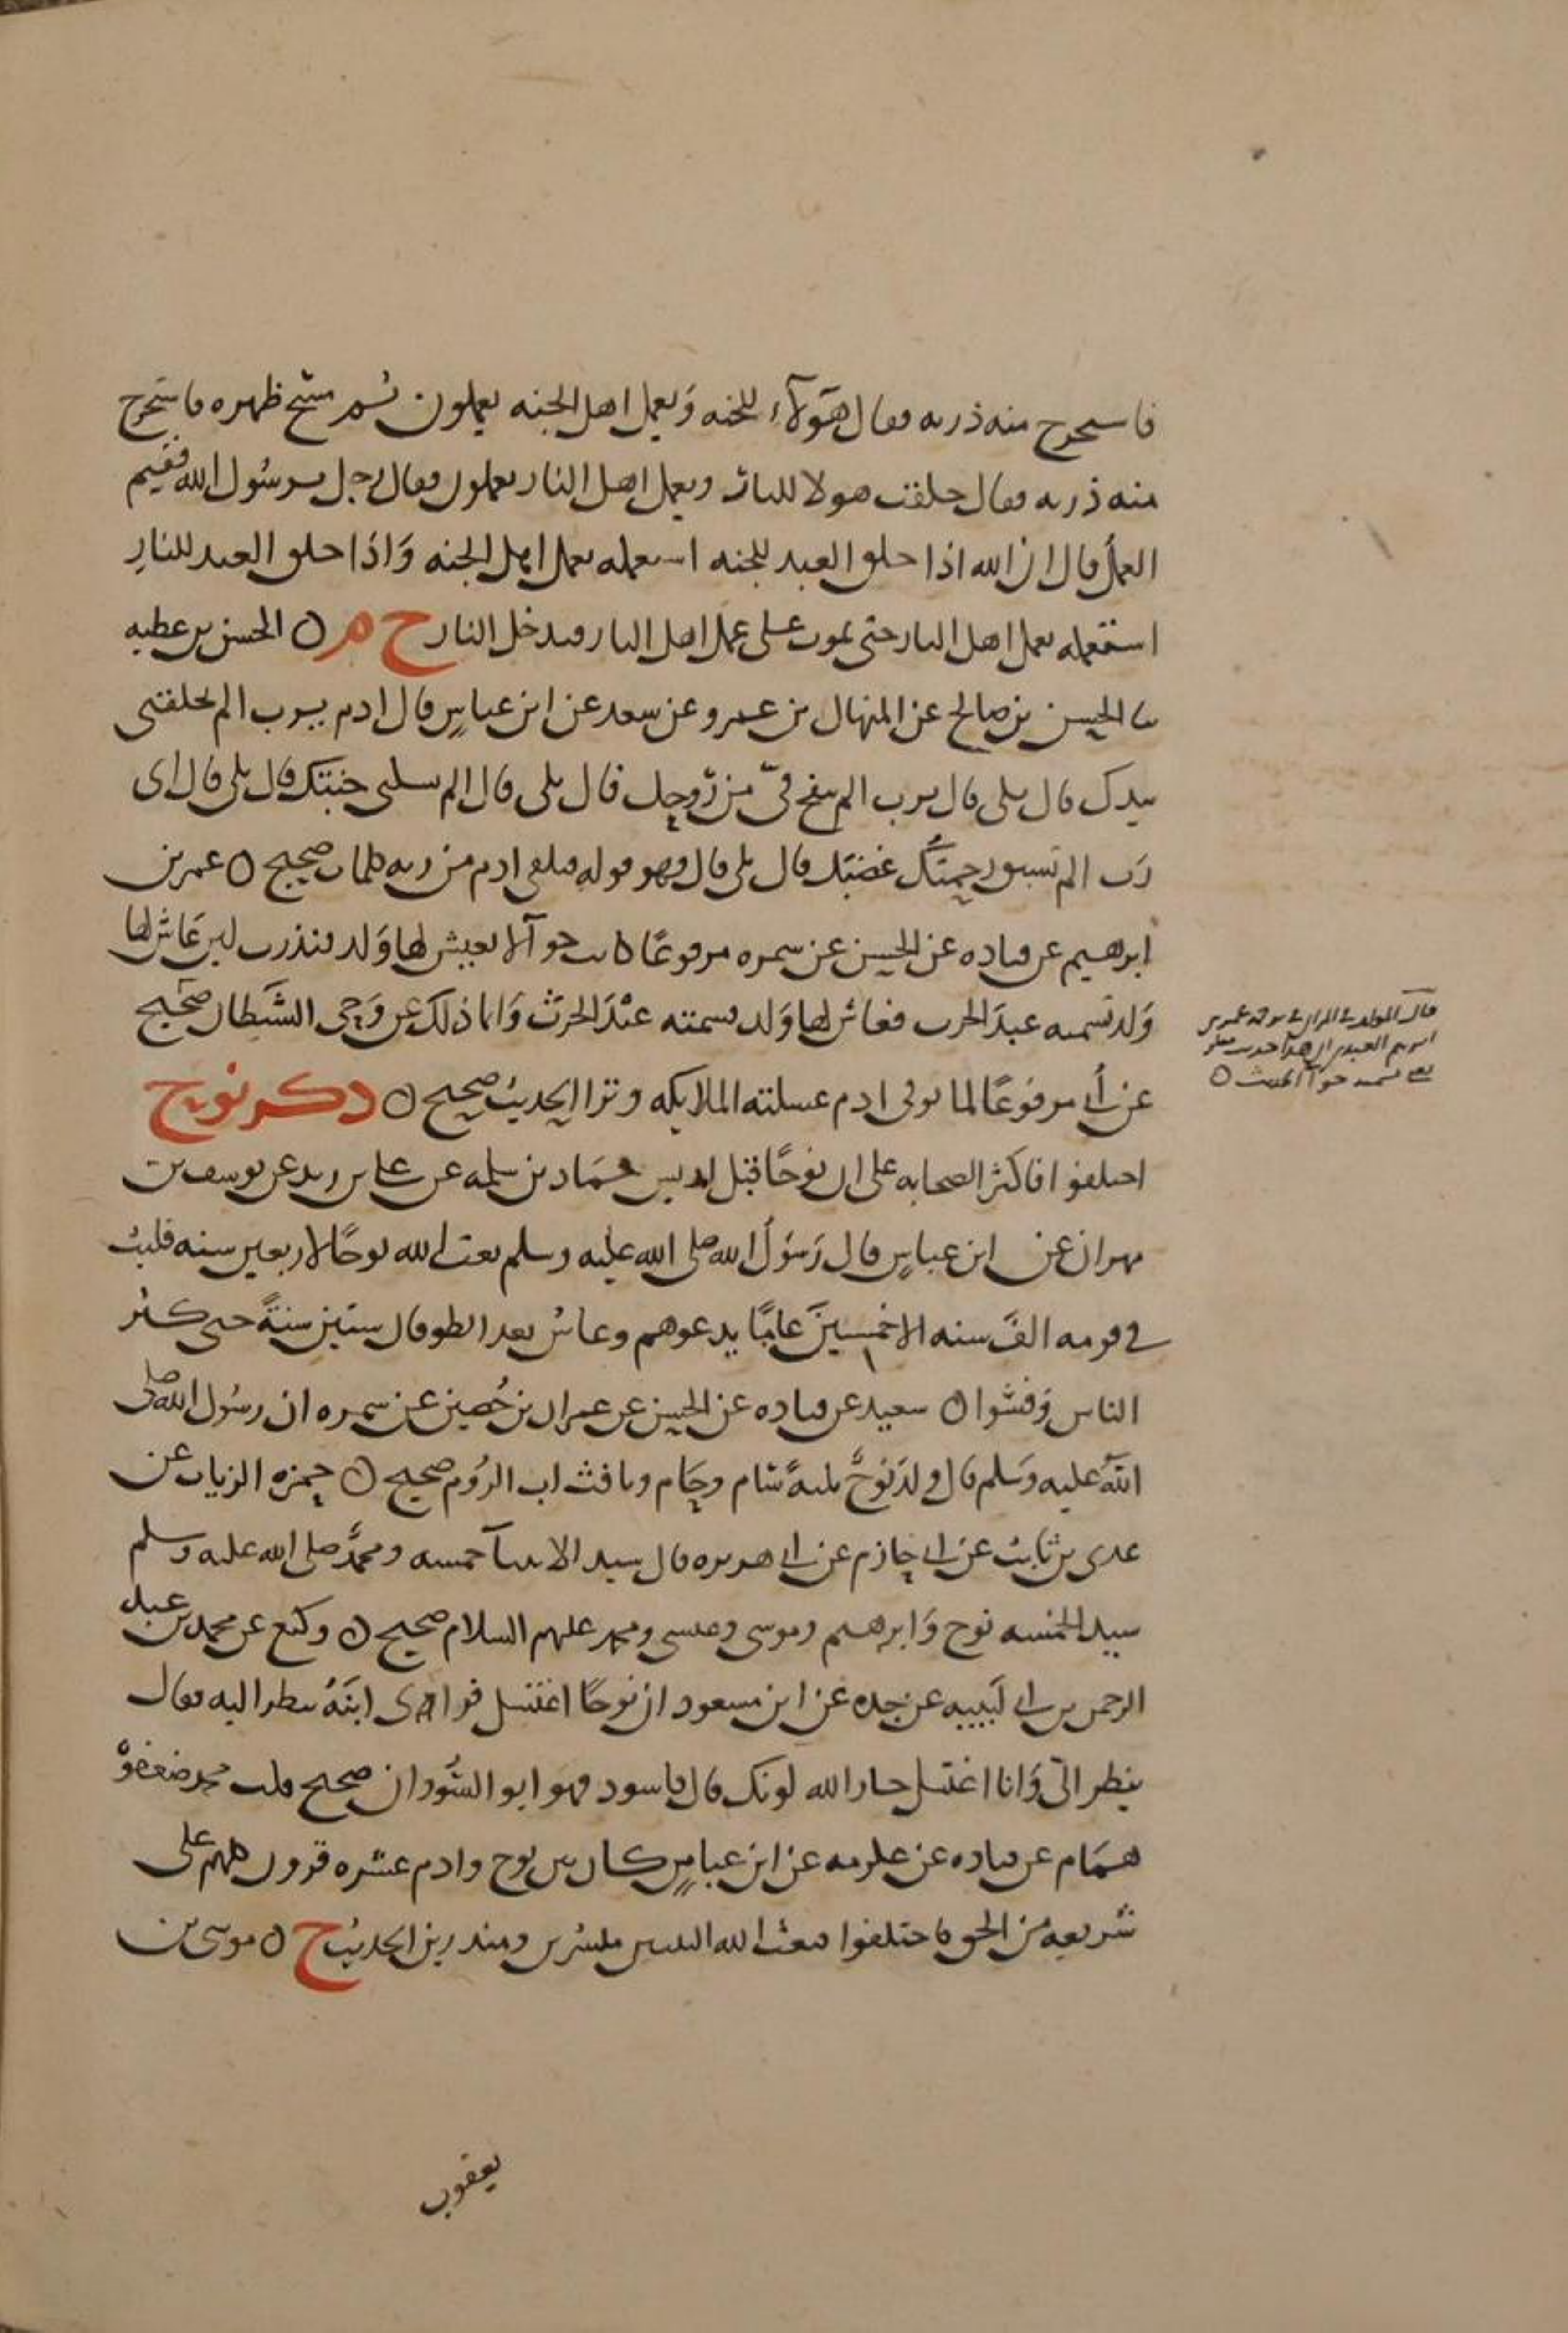 فاستخرج منه ذريه فقال هؤلاء للجنه وَبعمل اهل الجنه يعملون ثم مسح ظهره فاستخرج
منه ذريه فقال خلقت هولا للنار وبعمل اهل النار يعملون فقال رجل يرسُول الله ففيم
العملُ قال ان الله اذا خلق العبد للجنه استعمله بعمل اهل الجنه وَاذا خلق العبد للنارِ
استعمله بعمل اهل النار حتى يموت على عمل اهل النار فيدخل النار خ م ٥ الحسن بن عطيه
ثنا الحسن بن صالح عن المنهال بن عمرو عن سعيد عن ابن عباسٍ قال ادم يرب الم تخلقني
بيدك قال بلى قال يرب الم تنفخ فيّ من رُوحك قال بلى قال الم تسكني جنتك قال بلى قال اى
رَب الم تسبق رحمتُك غضبَك قال بلى قال فهو قوله فتلقى ادم من ربه كلمات صحيح ٥ عمر بن
ابرهيم عن قتاده عن الحسن عن سمره مرفوعًا كانت حوآ لا يعيش لها وَلد فنذرت لين عَاش لها
وَلد تسميه عبدَ الحرث فعاش لها وَلد فسمته عبْدَ الحَرث وَانما ذلك عن وَحى الشَيطان صَحيح
عن أبي مرفوعًا لما توفى ادم غسلته الملايكه وترا الحديث صحيح ٥ ذكر نوح
اختلفوا فاكثر الصحابه على ان نوحًا قبل ادريس حمَاد بن سلمه عن علي بن زيد عن يوسف بن
مهران عن ابن عباسٍ قال رَسُولُ الله صلى الله عليه وسلم بعث الله نوحًا لاربعين سنه فلبث
في قومه الفَ سنه الا خمسينَ عامًا يدعوهم وعاشَ بعد الطوفان ستين سنةً حتى كثر
الناس وَفشوا ٥ سعيد عن قتاده عن الحسن عن عمران بن حُصين عن سمره ان رسُول الله صلى
اللهُ عليه وَسلم قال ولدَ نوحٌ ثلثةً سَام وحَام ويافث ابَ الرُوم صحيح ٥ حمزه الزيات عن
عدى بن ثابت عن ابي حازم عن ابي هريره قال سيد الانبيآ خمسه ومحمدٌ صلى الله عليه وسلم
سيد الخمسه نوح وَابرهيم وموسى وعيسى ومحمد عليهم السلام صحيح ٥ وكيع عن محمد بن عبد
الرحمن بن ابي لَبيبه عن جده عن ابن مسعود ان نوحًا اغتسل فراى ابنَهُ ينظر اليه فقال
ينظر اليّ وَانا اغتسل حار الله لونك قال فاسود فهو ابو السُودان صحيح قلت محمد ضعفوْه
همَام عن قتاده عن عكرمه عن ابن عباسٍ كان بين نوح وادم عشره قرون كلهم على
شريعه من الحق فاختلفوا فبعث الله النبيين مبشرين ومنذرين الحديث خ ٥ موسى بن
قال المولف في الميزان في ترجمة عمر بن
ابرهيم العبدى ان هذا حديث منكر
يعني تسميه حوآ الحديث ٥
يعقوب